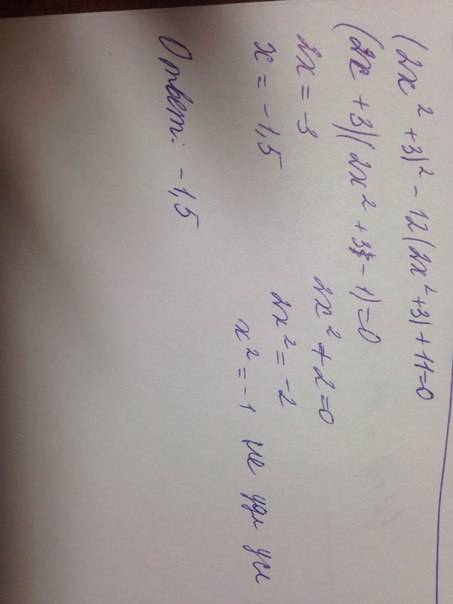 (2x² + 3)² - 12(2x²+3) + 11=0
(2x + 3)(2x² + 3 - 1)=0
2x = -3 2x² + 2=0
x = -1,5 2x² = -2
x² = -1 не удл усл
Ответ: -1,5